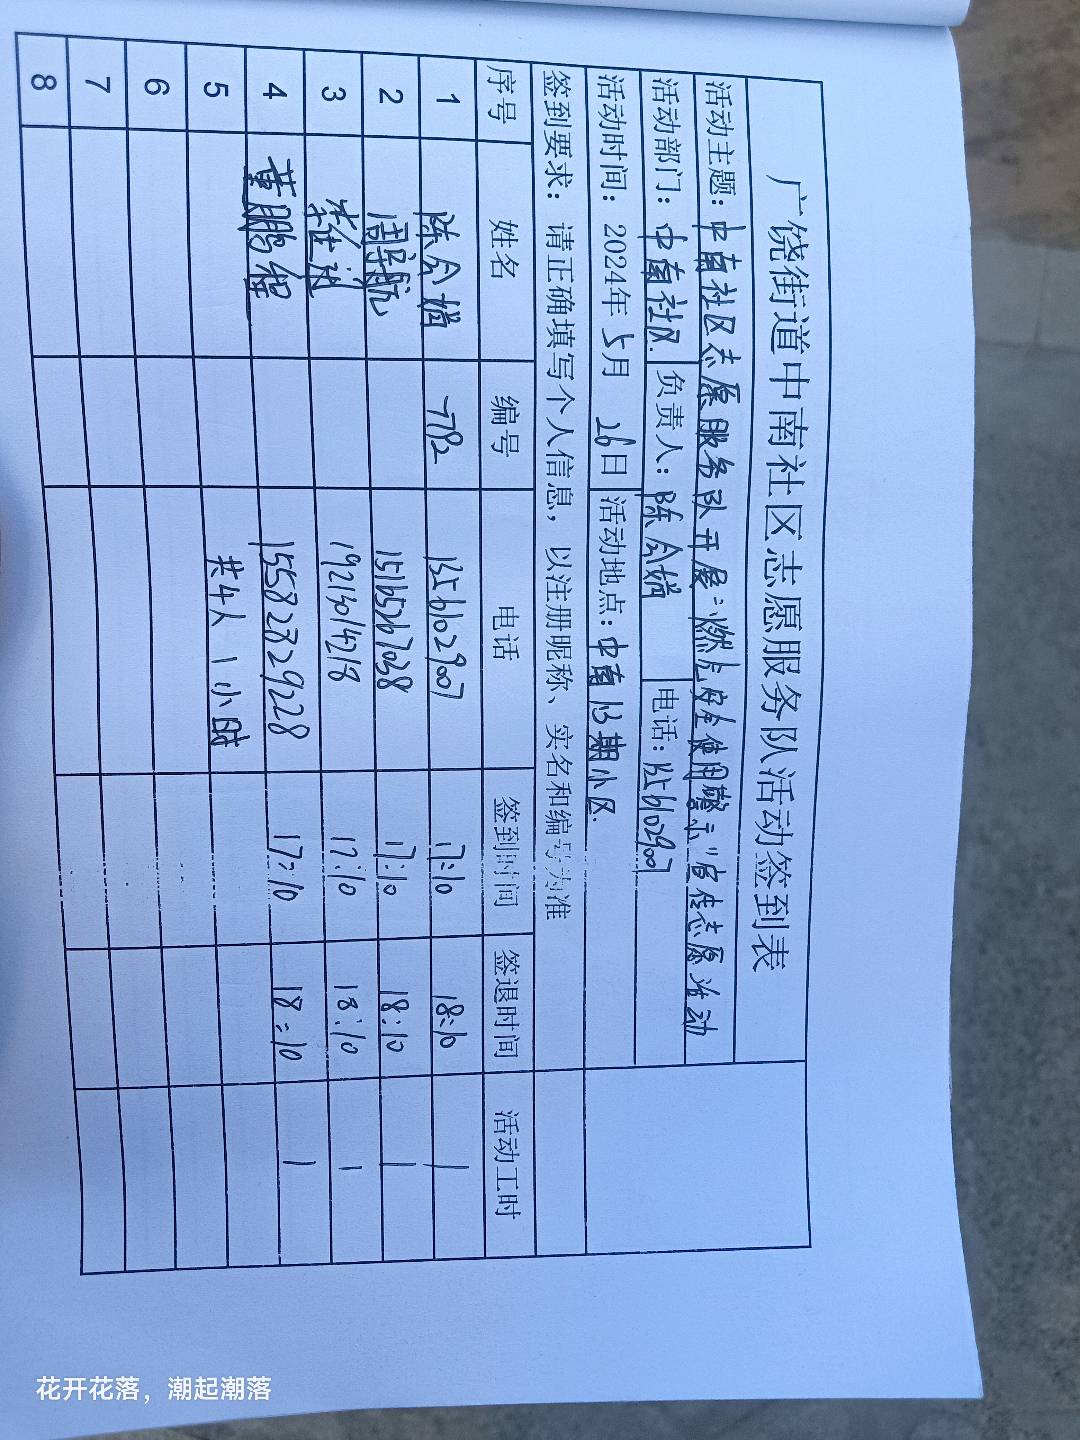 广饶街道中南社区志愿服务队活动签到表
活动主题：中南社区志愿服务队开展"燃气安全使用警示"宣传志愿活动
活动部门：中南社区 负责人：陈会娟 电话：
活动时间：2024年 5月 26日 活动地点：中南 期小区
签到要求：请正确填写个人信息，以注册昵称、实名和编号为准
序号 姓名 编号 电话 签到时间 签退时间 活动工时
1 陈会娟 17:10 18:10 1
2 周宇航 15165267038 17:10 18:10 1
3 19213014218 17:10 18:10 1
4 黄鹏程 15582329228 17:10 18:10 1
5 共4人 1小时
6
7
8
花开花落，潮起潮落